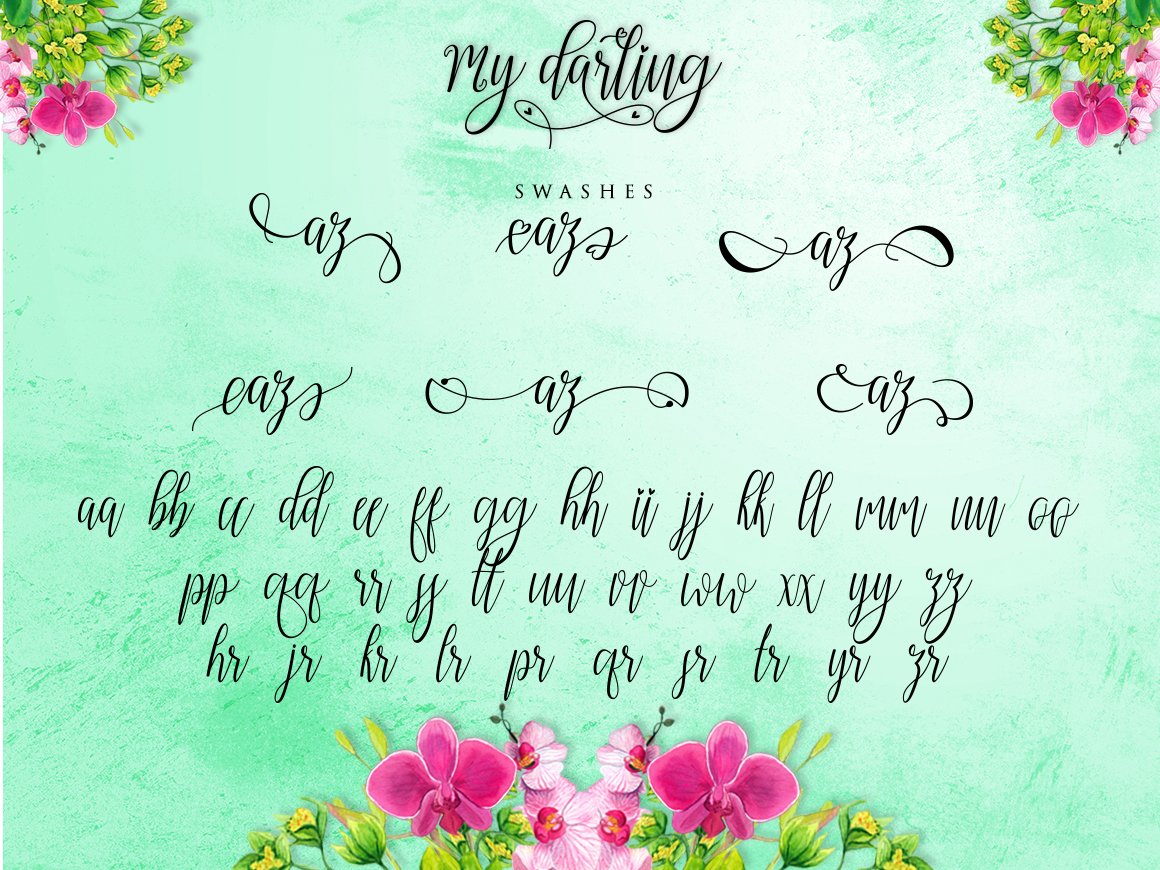 My darling
SWASHES
az az az
az az az
aa bb cc dd ee ff gg hh ii jj kk ll mm nn oo
pp qq rr ss tt uu vv ww xx yy zz
hr jr kr lr pr qr sr tr yr zr